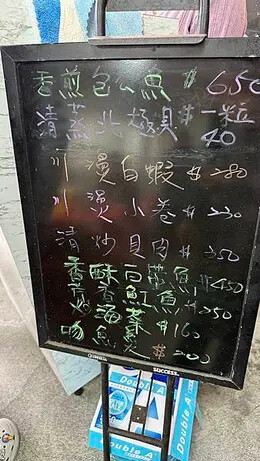 香煎包公魚 $650
清蒸北極貝 $一粒40
川燙白蝦 $280
川燙小卷 $230
清炒貝肉 $250
香酥白帶魚 $450
魟魚 $250
$160
$200
SUCCESS.
Double A
Double A